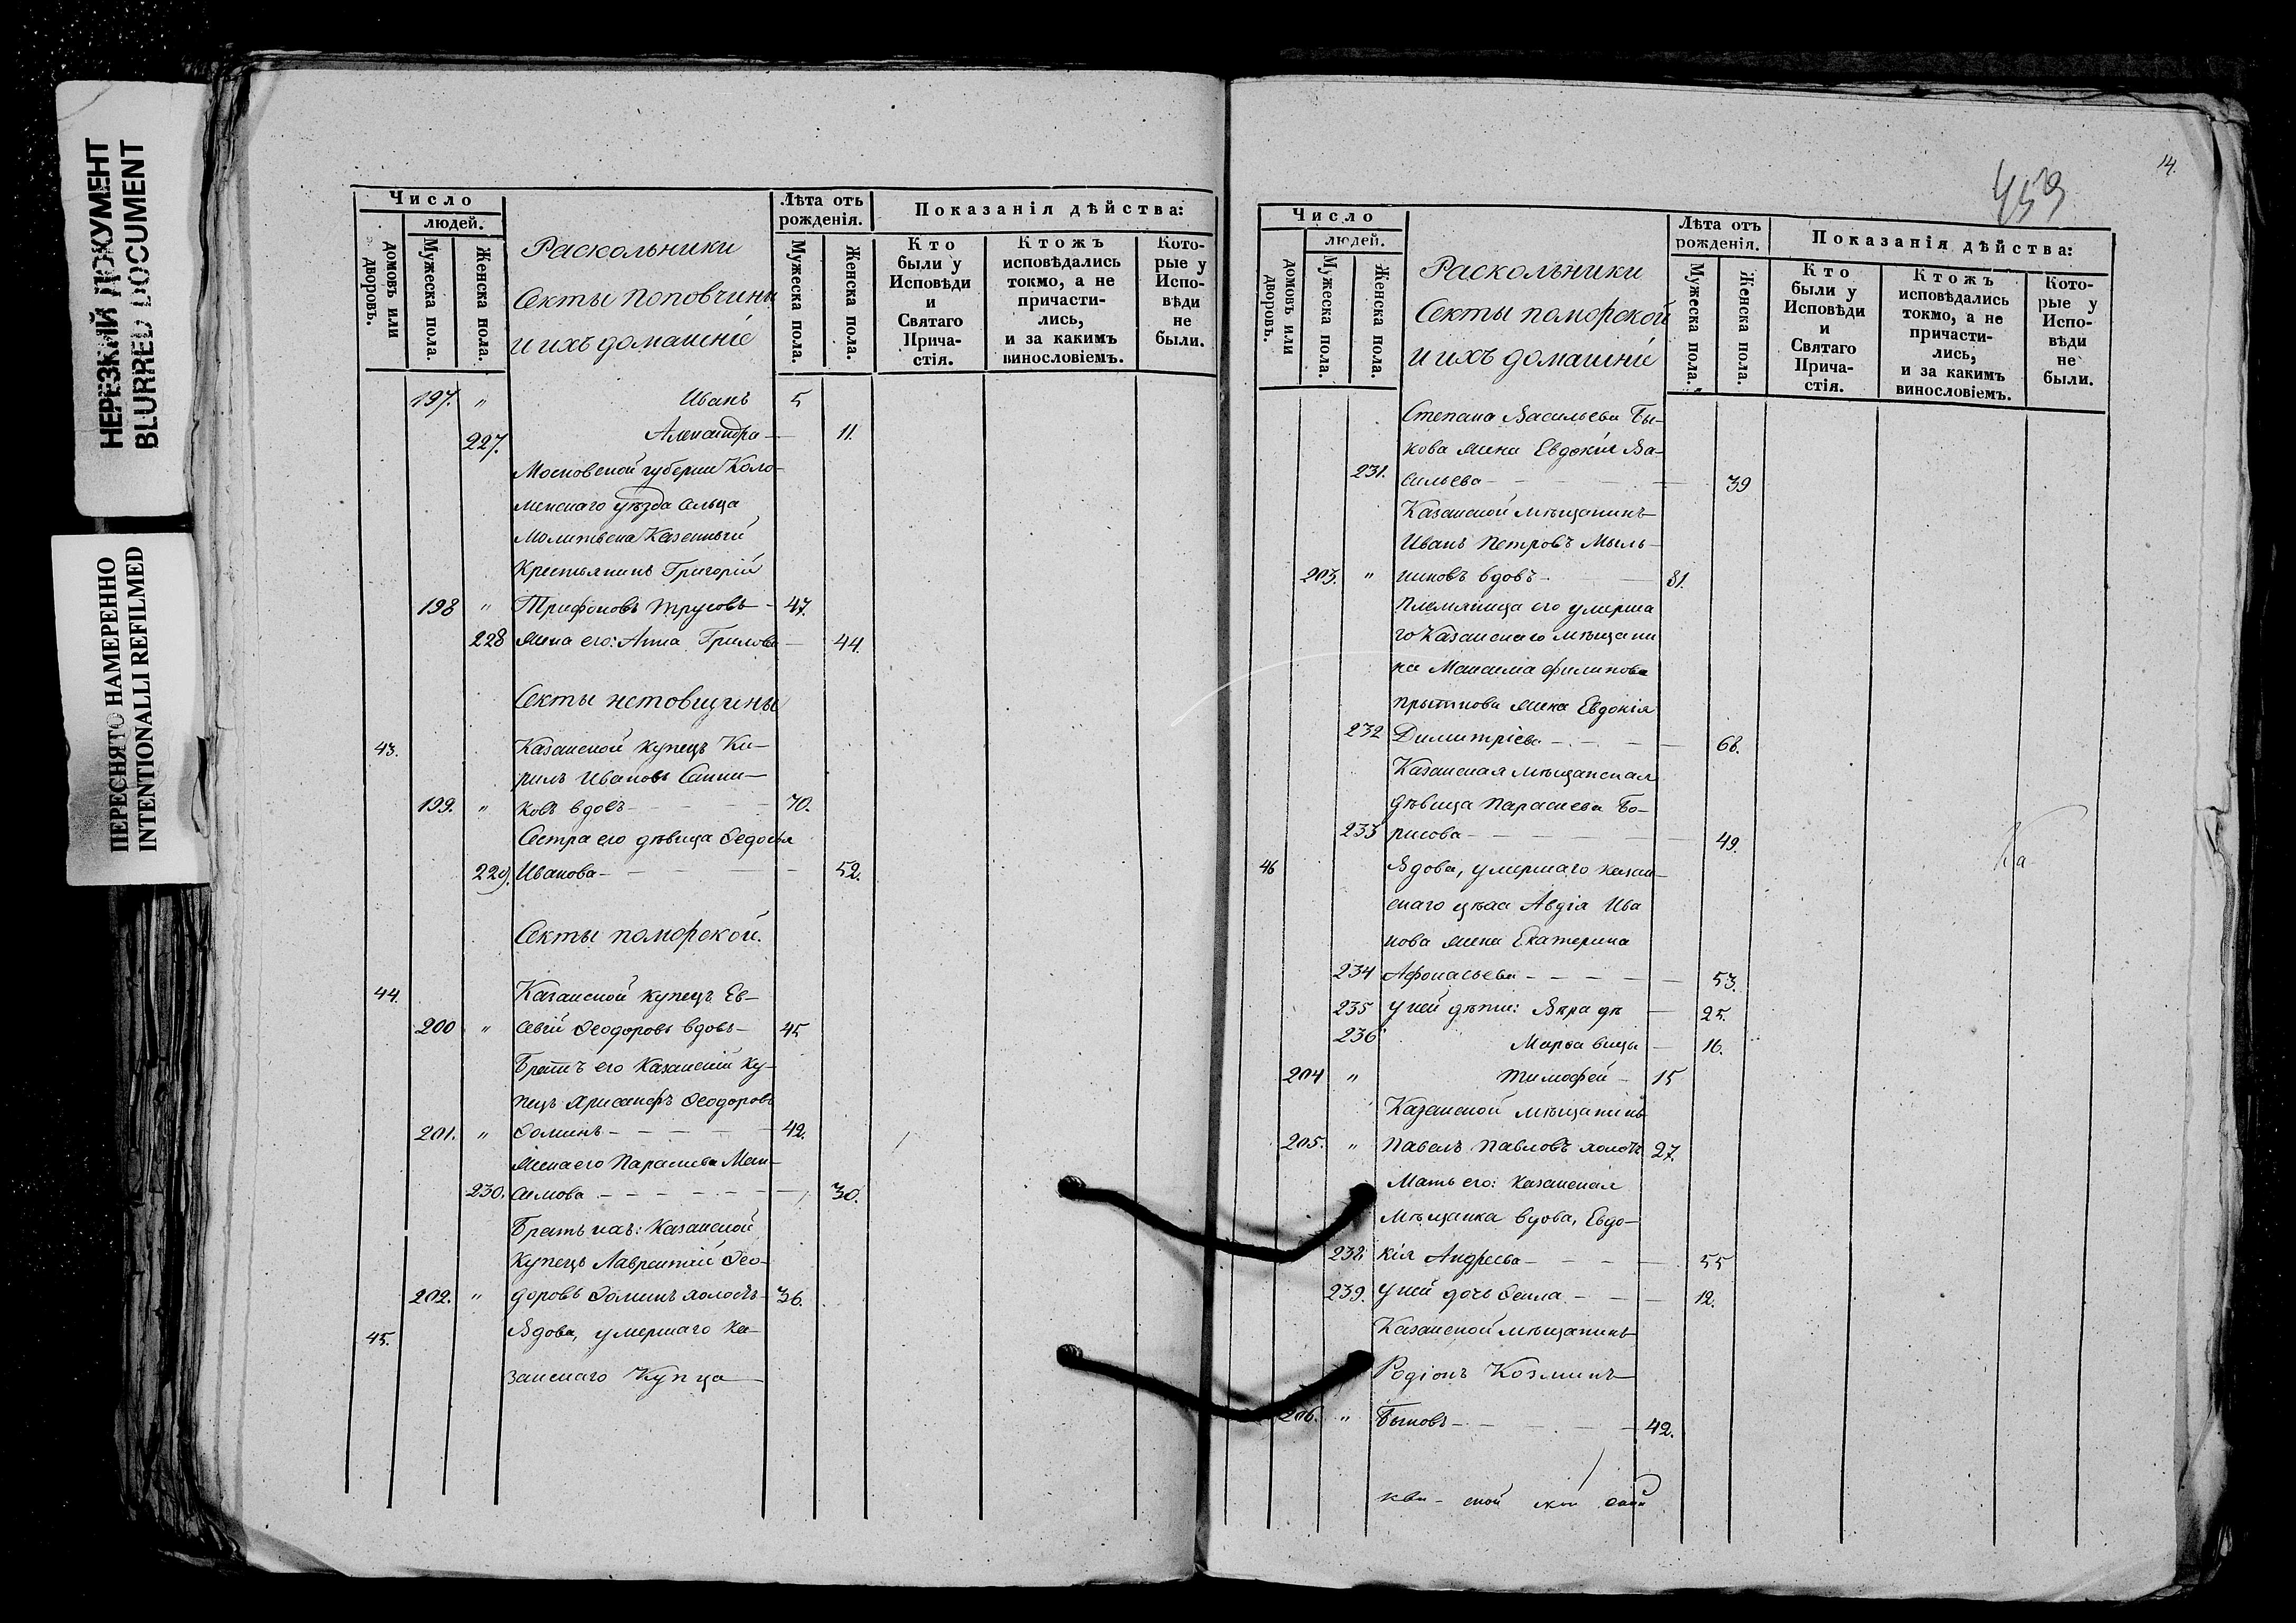 НЕРЕЗКИЙ ДОКУМЕНТ
BLURRED DOCUMENT
ПЕРЕСНЯТО НАМЕРЕННО
INTENTIONALLI REFILMED
Число
людей.
домовъ или дворовъ.
Мужеска пола.
Женска пола.
Раскольники
Секты поповчины
и ихъ домашніе
Лѣта отъ
рожденія.
Мужеска пола.
Женска пола.
Показанія дѣйства:
Кто
были у
Исповѣди
и
Святаго
Прича-
стія.
Ктожъ
исповѣдались
токмо, а не
причасти-
лись,
и за какимъ
винословіемъ.
Кото-
рые у
Испо-
вѣди
не
были.
197. " Иванъ 5
227. Александра — 11.
Московской губерніи Коло-
менскаго уѣзда сельца
Казенный
Крестьянинъ Григорій
198 " Трифоновъ Трусовъ - 47.
228 жена его: Анна — 44.
Секты нетовщины
43. Казанской купецъ Ки-
рилъ Ивановъ
199. " ковъ вдовъ - 70.
Сестра его дѣвица Ѳедосья
229. Иванова - 52.
Секты поморской.
44. Казанской купецъ Ев-
200 " севій Ѳеодоровъ вдовъ - 45
Братъ его Казанскій ку-
пецъ Ѳеодоровъ
201. " Ѳоминъ - 42.
Жена его Параскева Мак-
230. симова - 30.
Братъ ихъ: Казанской
Купецъ Лаврентій Ѳео-
202. " доровъ Ѳоминъ холостъ - 36.
45. Вдова, умершаго Ка-
занскаго Купца
14.
459
Число
людей.
домовъ или дворовъ.
Мужеска пола.
Женска пола.
Раскольники
Секты поморской
и ихъ домашніе
Лѣта отъ
рожденія.
Мужеска пола.
Женска пола.
Показанія дѣйства:
Кто
были у
Исповѣди
и
Святаго
Прича-
стія.
Ктожъ
исповѣдались
токмо, а не
причасти-
лись,
и за какимъ
винословіемъ.
Кото-
рые у
Испо-
вѣди
не
были.
Степана Васильева Бы-
кова жена Евдокія Ва-
231. сильева - 39
Казанской мѣщанинъ
Иванъ Петровъ Мыль-
203. " никовъ вдовъ - 31.
Племяница его умерша
го Казанскаго мѣщани
на Максима Филипова
жена Евдокія
232 Димитріева - 68.
Казанская мѣщанская
дѣвица Параскева Бо-
233 рисова - 49.
46 Вдова, умершаго казан-
скаго Авдія Ива
нова жена Екатерина
234 Афонасьева - 53.
235 У ней дѣти: Вѣра дѣ — 25.
236 Марѳа вицы — 16.
204 " Тимофей - 15
Казанской мѣщанинъ
205. " Павелъ Павловъ холостъ 27.
Мать его: Казанская
Мѣщанка вдова, Евдо-
238 кія Андреева - 55
239. У ней дочь Ѳекла - 12.
Казанской мѣщанинъ
Родіонъ Козминъ
206. " Быковъ - 42.